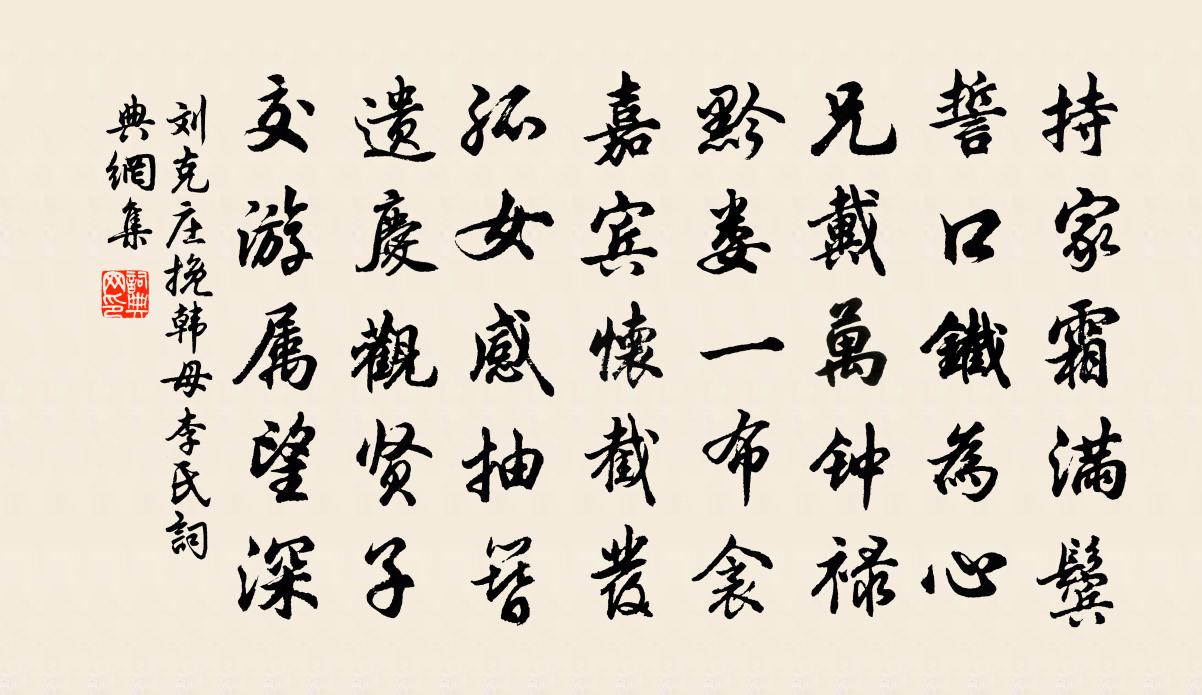 持家霜满鬓
誓口鐵為心
兄戴萬钟禄
黔娄一布衾
嘉宾懷截發
孤女感抽簪
遗慶觀贤子
交游属望深
刘克庄挽韩母李氏詞
典網集
詞典
网印